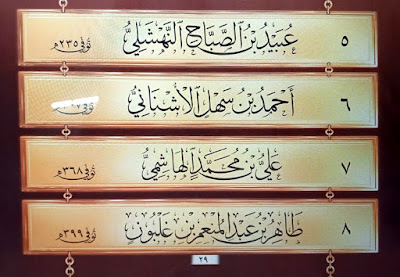 ٥ عُبَيْدُ بْنُ ٱلصَّبَّاحِ ٱلنَّهْشَلِيُّ تُوُفِّيَ ٢٣٥م
٦ أَحْمَدُ بْنُ سَهْلٍ ٱلْأُشْنَانِيُّ
٧ عَلِيُّ بْنُ مُحَمَّدٍ ٱلْهَاشِمِيُّ تُوُفِّيَ ٣٦٨م
٨ طَاهِرُ بْنُ عَبْدِ ٱلْمُنْعِمِ بْنِ غَلْبُونَ تُوُفِّيَ ٣٩٩م
٢٩